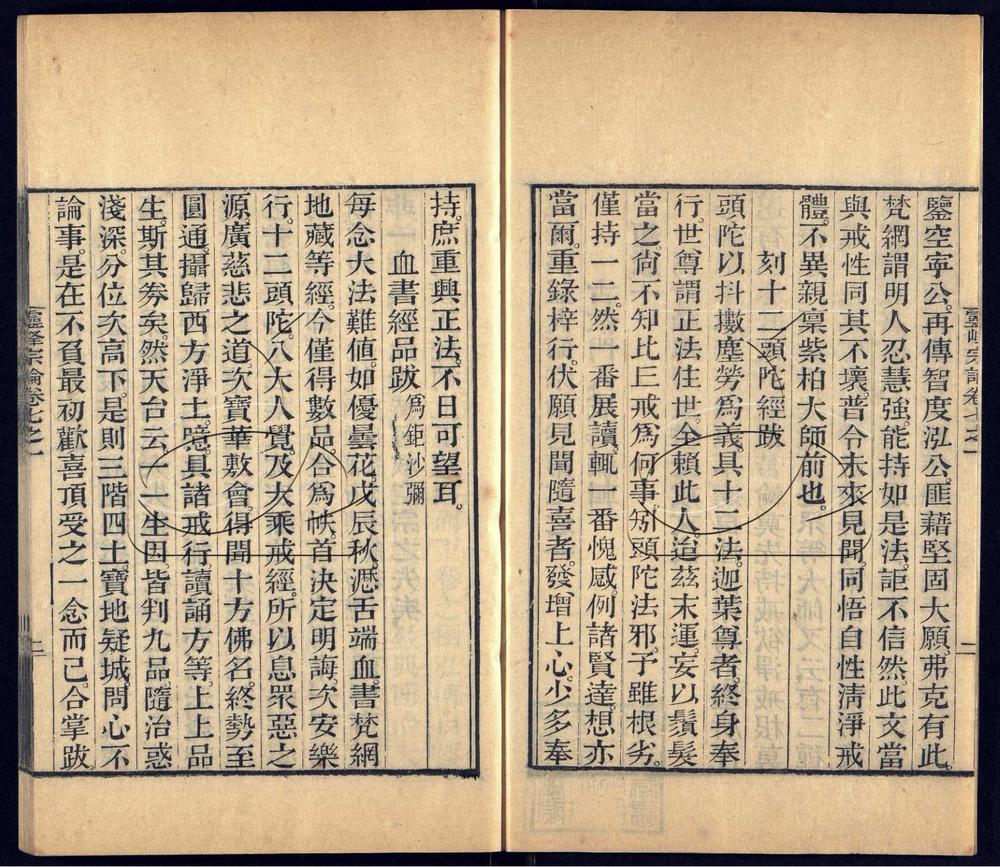 鑒空寧公。再傳智度泓公。匪藉堅固大願。弗克有此。
梵網謂明人忍慧強。能持如是法。詎不信然。此文當
與戒性同其不壞。普令未來見聞。同悟自性清淨戒
體。不異親稟紫柏大師前也。
刻十二頭陀經跋
頭陀以抖擻塵勞爲義。具十二法。迦葉尊者。終身奉
行。世尊謂正法住世。全賴此人。迨茲末運。妄以鬚髮
當之。尙不知比丘戒爲何事。矧頭陀法邪。予雖根劣。
僅持一二。然一番展讀。輒一番愧感。例諸賢達。想亦
當爾。重錄梓行。伏願見聞隨喜者。發增上心。少多奉
靈峰宗論卷七之一
二
持。庶重興正法。不日可望耳。
血書經品跋 爲鉅沙彌
每念大法難値。如優曇花。戊辰秋。瀝舌端血。書梵網
地藏等經。今僅得數品。合爲帙。首決定明誨。次安樂
行。十二頭陀。八大人覺。及大乘戒經。所以息眾惡之
源。廣慈悲之道。次寶華敷會。得聞十方佛名。終勢至
圓通。攝歸西方淨土。噫。具諸戒行。讀誦方等。上上品
生。斯其券矣。然天台云。一一生因皆判九品。隨治惑
淺深。分位次高下。是則三階四土。寶地疑城。問心不
論事。是在不負最初歡喜頂受之一念而已。合掌跋。
靈峰宗論卷七之一